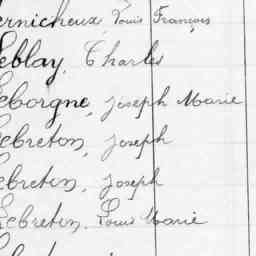 ernicheux, Louis François
Leblay, Charles
Leborgne, Joseph Marie
Lebreton, Joseph
Lebreton, Joseph
Lebreton, Louis Marie